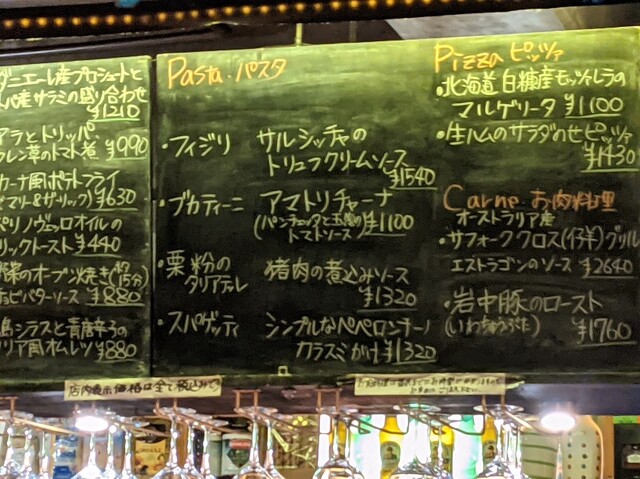 ダニエーレ産プロシュートと
パ産サラミの盛り合わせ
¥1210
アラとトリッパ、
レン草のトマト煮 ¥990
カーナ風ポテトフライ
ズマリー&ガーリック) ¥630
ペリノヴェッロオイルの
リックトースト ¥440
野菜のオーブン焼き(約15分)
チョビバターソース ¥880
島シラスと青唐辛子の
リア風オムレツ ¥880
Pasta・パスタ
・フィジリ サルシッチャの
トリュフクリームソース
¥1540
・ブカティーニ アマトリチャーナ
(パンチェッタと玉ねぎの
トマトソース) ¥1100
・栗粉の
タリアテレ
猪肉の煮込みソース
¥1320
・スパゲッティ シンプルなペペロンチーノ
カラスミがけ ¥1320
Pizza ピッツァ
・北海道 白糠産モッツァレラの
マルゲリータ ¥1100
・生ハムのサラダのせピッツァ
¥1430
Carne お肉料理
オーストラリア産
・サフォーククロス(仔羊)グリル
エストラゴンのソース ¥2640
・岩中豚のロースト
(いわちゅうぶた) ¥1760
店内表示価格は全て税込みです